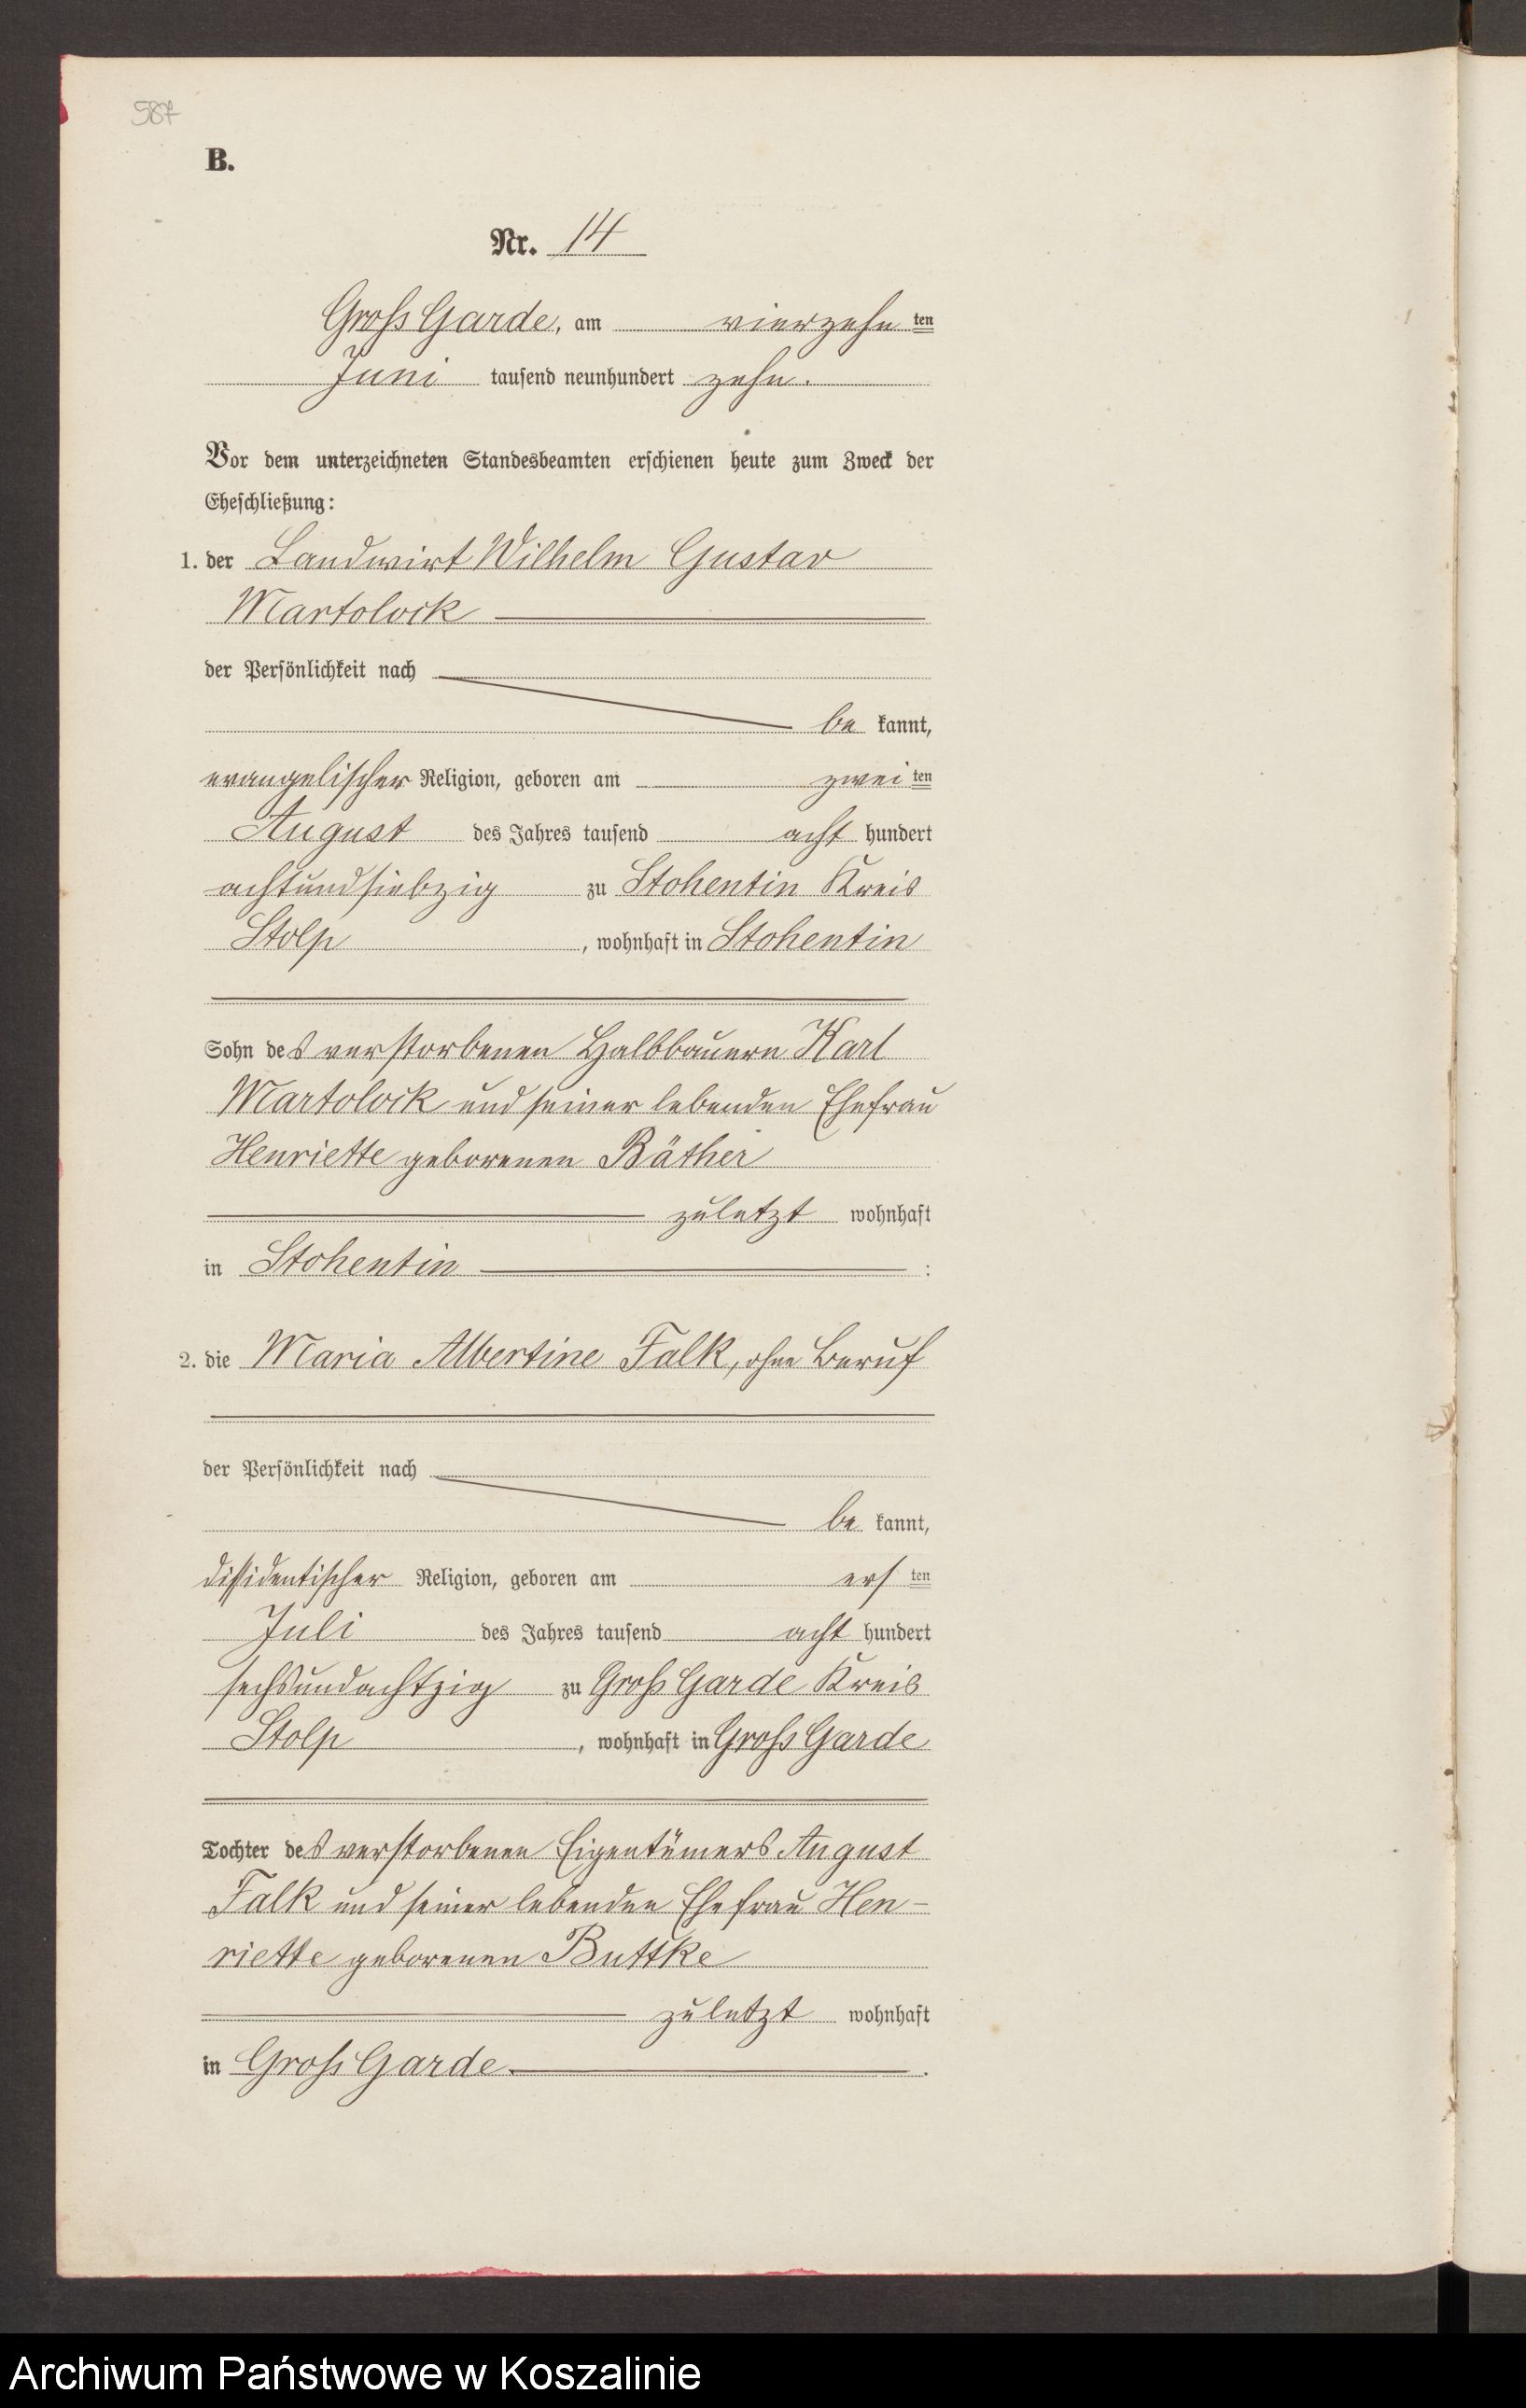 587
B.
Nr. 14
Gross Garde, am vierzehn ten
Juni tausend neunhundert zehn.
Vor dem unterzeichneten Standesbeamten erschienen heute zum Zweck der
Eheschließung:
1. der Landwirt Wilhelm Gustav
Martolock
der Persönlichkeit nach
be kannt,
evangelischer Religion, geboren am zwei ten
August des Jahres tausend acht hundert
achtundsiebzig zu Stohentin Kreis
Stolp, wohnhaft in Stohentin
Sohn des verstorbenen Halbbauern Karl
Martolock und seiner lebenden Ehefrau
Henriette geborenen Bäther
zuletzt wohnhaft
in Stohentin :
2. die Maria Albertine Falk, ohne Beruf
der Persönlichkeit nach
be kannt,
dissidentischer Religion, geboren am ers ten
Juli des Jahres tausend acht hundert
sechsundachtzig zu Gross Garde Kreis
Stolp, wohnhaft in Gross Garde
Tochter des verstorbenen Eigentümers August
Falk und seiner lebenden Ehefrau Hen-
riette geborenen Buttke
zuletzt wohnhaft
in Gross Garde .
Archiwum Państwowe w Koszalinie